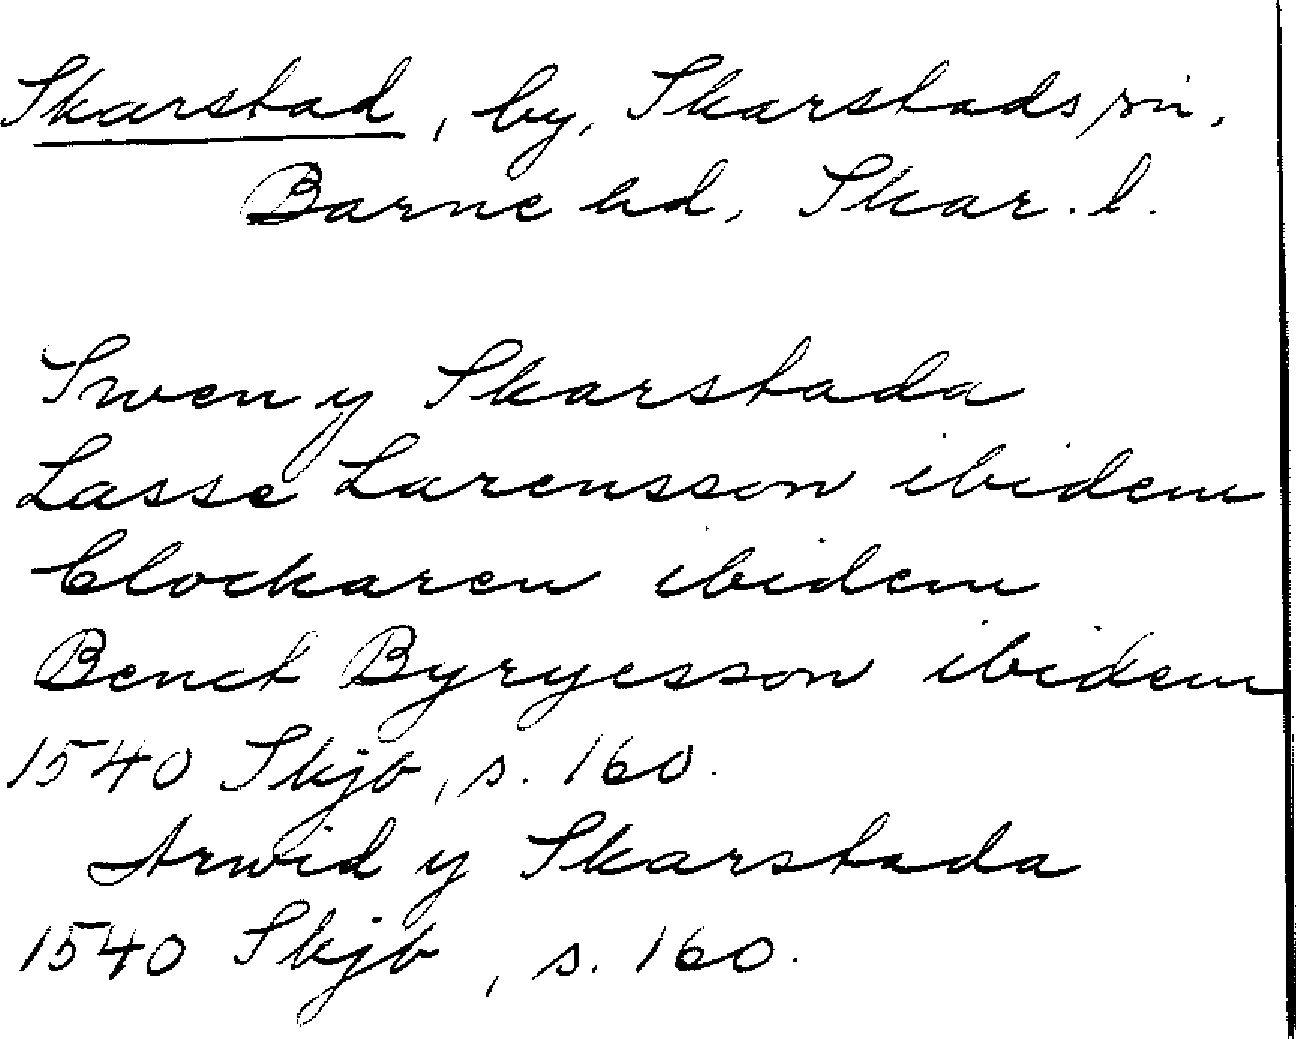 Skarstad, by, Skarstads sn,
Barne hd, Skar. l.
Swen y Skarstada
Lasse Larensson ibidem
Clockaren ibidem
Benct Byryesson ibidem
1540 Skjb, s. 160.
Arwid y Skarstada
1540 Skjb, s. 160.